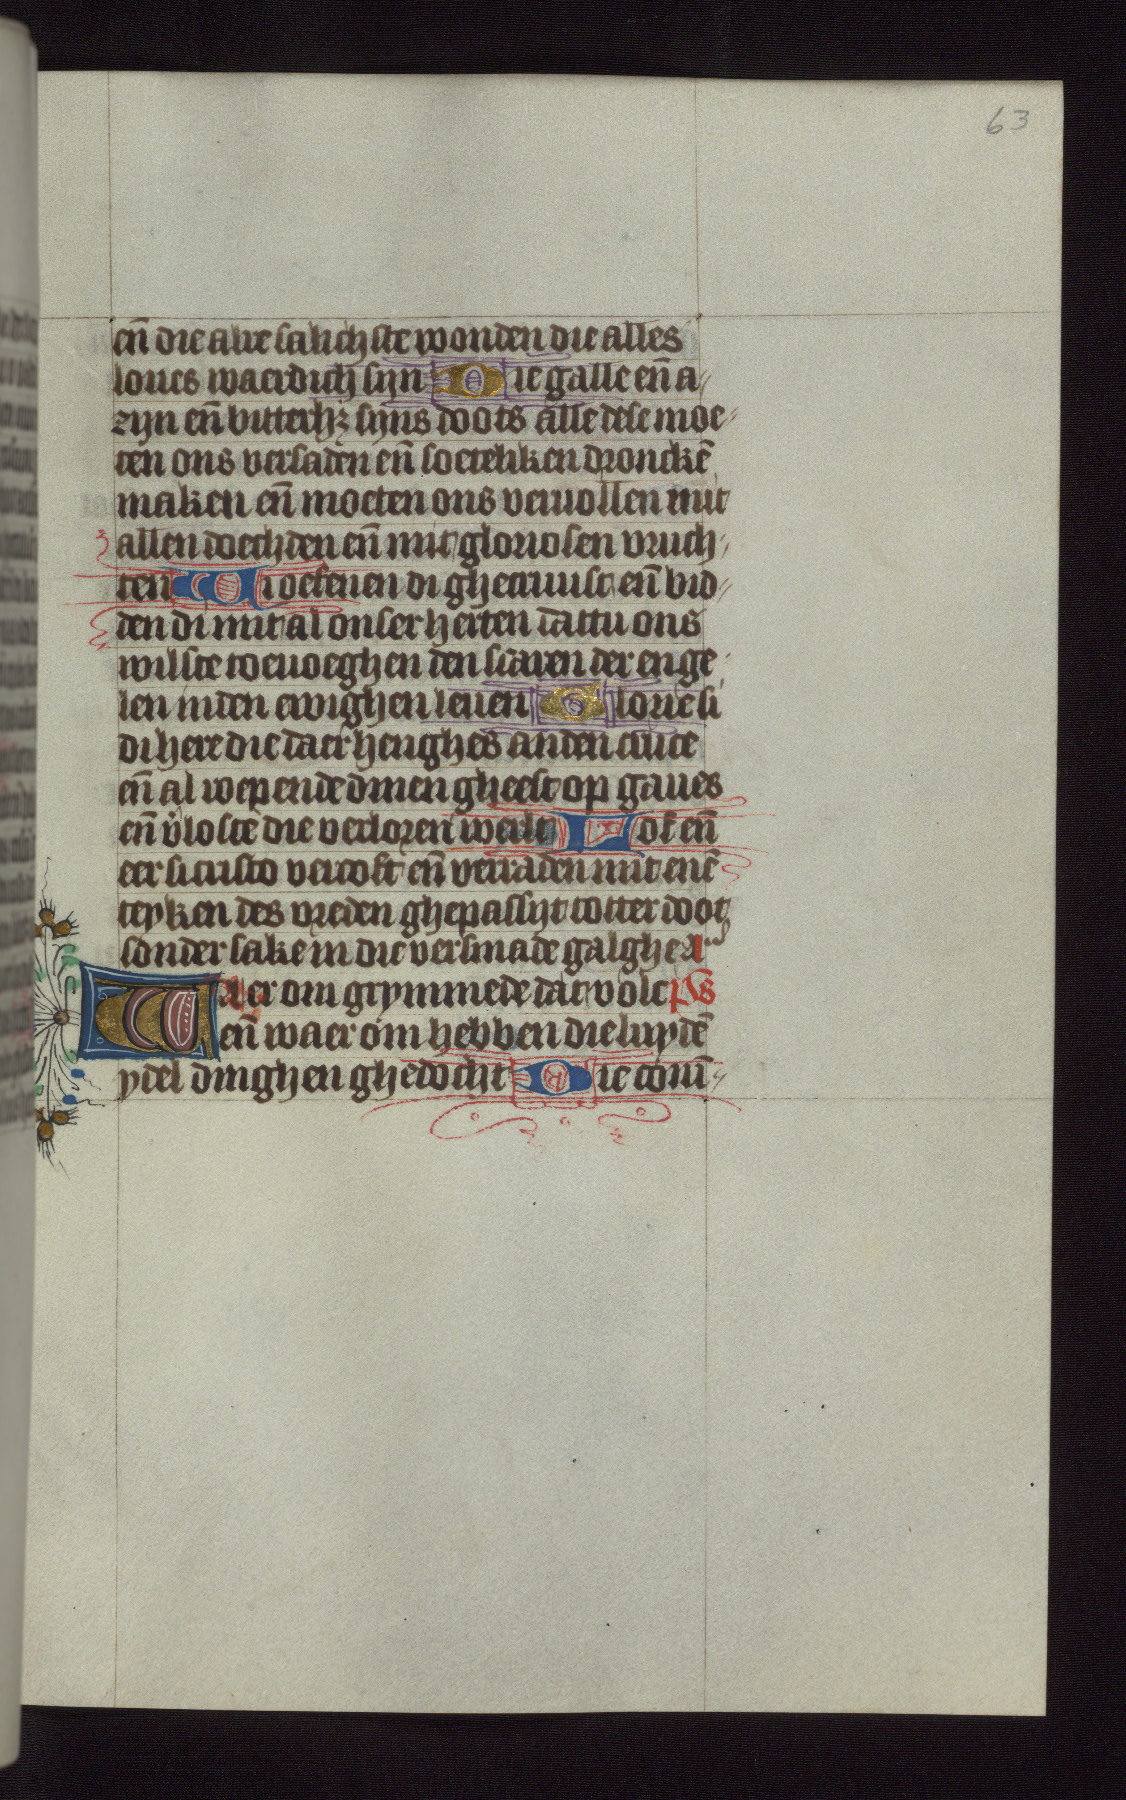 63
en̄ die alre salichste wonden die alles
loues waerdich sijn Die galle en̄ a
zijn en̄ bitterhꝫ sijns doots alle dese moe
ten ons versaden en̄ soeteliken dronckē
maken en̄ moeten ons veruollen mit
allen doechden en̄ mit gloriosen vruch
ten Wi oefenen di ghecruust en̄ bid
den di mit al onser herten dattu ons
wilste toeuoeghen den scaren der enge
len inden ewighen leuen Glorie si
di here die daer henghes anden cruce
en̄ al wepende dinen gheest op gaues
en̄ v̄loste die verloren werlt Lof en̄
eer si cristo vercoft en̄ verraden mit enē
teyken des vreden ghepassijt totter doot
sonder sake in die versmade galghe a
Waer om grymmede dat volc ps
en̄ waer om hebben die luydē
ydel dinghen ghedocht Die coni